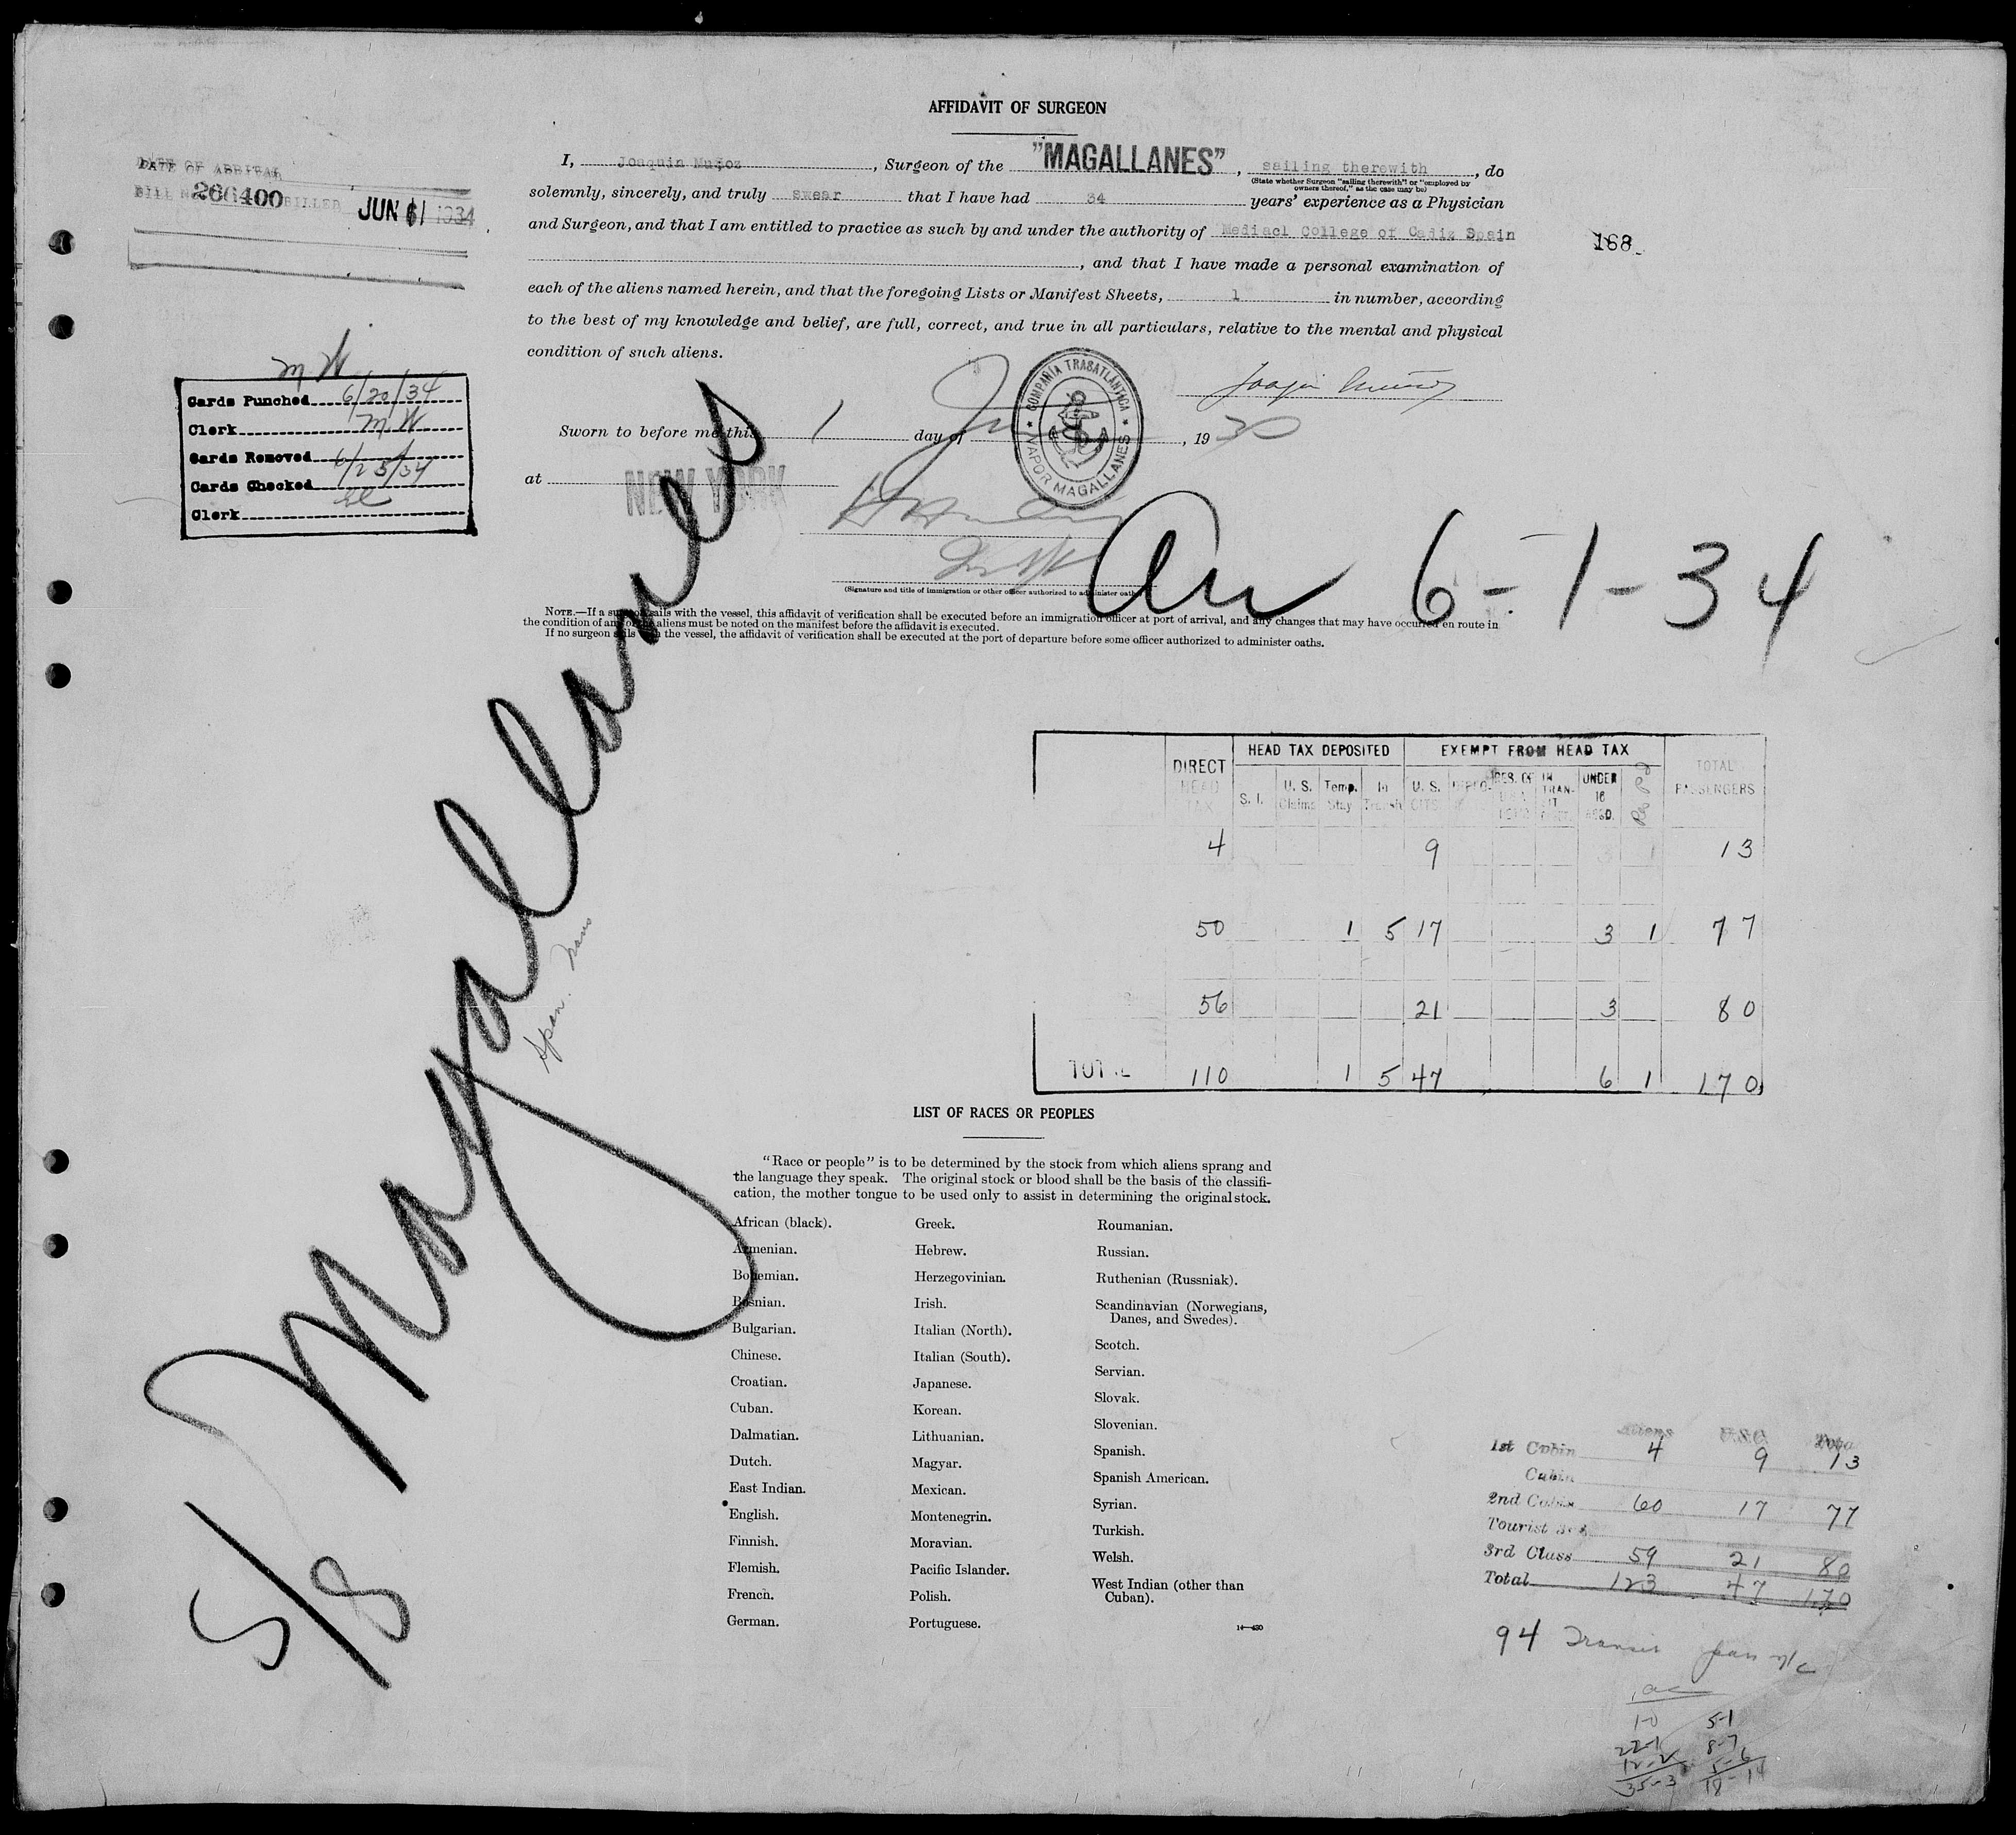 AFFIDAVIT OF SURGEON
I, Joaquin Muñoz, Surgeon of the "MAGALLANES", sailing therewith, do
(State whether Surgeon "sailing therewith" or "employed by owners thereof," as the case may be)
solemnly, sincerely, and truly swear that I have had 34 years' experience as a Physician
and Surgeon, and that I am entitled to practice as such by and under the authority of Mediacl College of Cadiz Spain
, and that I have made a personal examination of
each of the aliens named herein, and that the foregoing Lists or Manifest Sheets, 1 in number, according
to the best of my knowledge and belief, are full, correct, and true in all particulars, relative to the mental and physical
condition of such aliens.
DATE OF ARRIVAL
BILL 266400 BILLED JUN 1 1934
168
M W
Cards Punched 6/20/34
Clerk M W
Cards Removed
Cards Checked 6/25/34
Clerk
Joaquin Muñoz
Sworn to before me this 1 day of , 19
COMPAÑIA TRASATLANTICA
VAPOR MAGALLANES
at NEW YORK
(Signature and title of immigration or other officer authorized to administer oaths)
Arr 6-1-34
NOTE.—If a surgeon sails with the vessel, this affidavit of verification shall be executed before an immigration officer at port of arrival, and any changes that may have occurred en route in
the condition of any of the aliens must be noted on the manifest before the affidavit is executed.
If no surgeon sails with the vessel, the affidavit of verification shall be executed at the port of departure before some officer authorized to administer oaths.
Magallanes
Span.
5/8
DIRECT HEAD TAX HEAD TAX DEPOSITED EXEMPT FROM HEAD TAX TOTAL PASSENGERS
S. I. U. S. Claims Temp. Stay In Transit U. S. CITS. RES. OF IN TRANSIT UNDER 16
4 9 13
50 1 5 17 3 1 77
56 21 3 80
TOTAL 110 1 5 47 6 1 170
LIST OF RACES OR PEOPLES
"Race or people" is to be determined by the stock from which aliens sprang and
the language they speak. The original stock or blood shall be the basis of the classifi-
cation, the mother tongue to be used only to assist in determining the original stock.
African (black).
Armenian.
Bohemian.
Bosnian.
Bulgarian.
Chinese.
Croatian.
Cuban.
Dalmatian.
Dutch.
East Indian.
English.
Finnish.
Flemish.
French.
German.
Greek.
Hebrew.
Herzegovinian.
Irish.
Italian (North).
Italian (South).
Japanese.
Korean.
Lithuanian.
Magyar.
Mexican.
Montenegrin.
Moravian.
Pacific Islander.
Polish.
Portuguese.
Roumanian.
Russian.
Ruthenian (Russniak).
Scandinavian (Norwegians,
Danes, and Swedes).
Scotch.
Servian.
Slovak.
Slovenian.
Spanish.
Spanish American.
Syrian.
Turkish.
Welsh.
West Indian (other than
Cuban).
14—430
Aliens U.S.C. Total
1st Cabin 4 9 13
Cabin
2nd Cabin 60 17 77
Tourist 3rd
3rd Class 59 21 80
Total 123 47 170
94 Transit
1-0 5-1
22-1 8-7
12-2 5-6
35-3 18-14